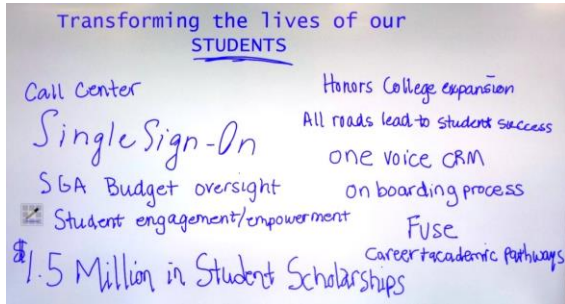 Transforming the lives of our
STUDENTS
Call Center
Single Sign-On
SGA Budget oversight
Student engagement/empowerment
$1.5 Million in Student Scholarships
Honors College expansion
All roads lead to student success
one voice CRM
on boarding process
Fuse
Career+academic pathways